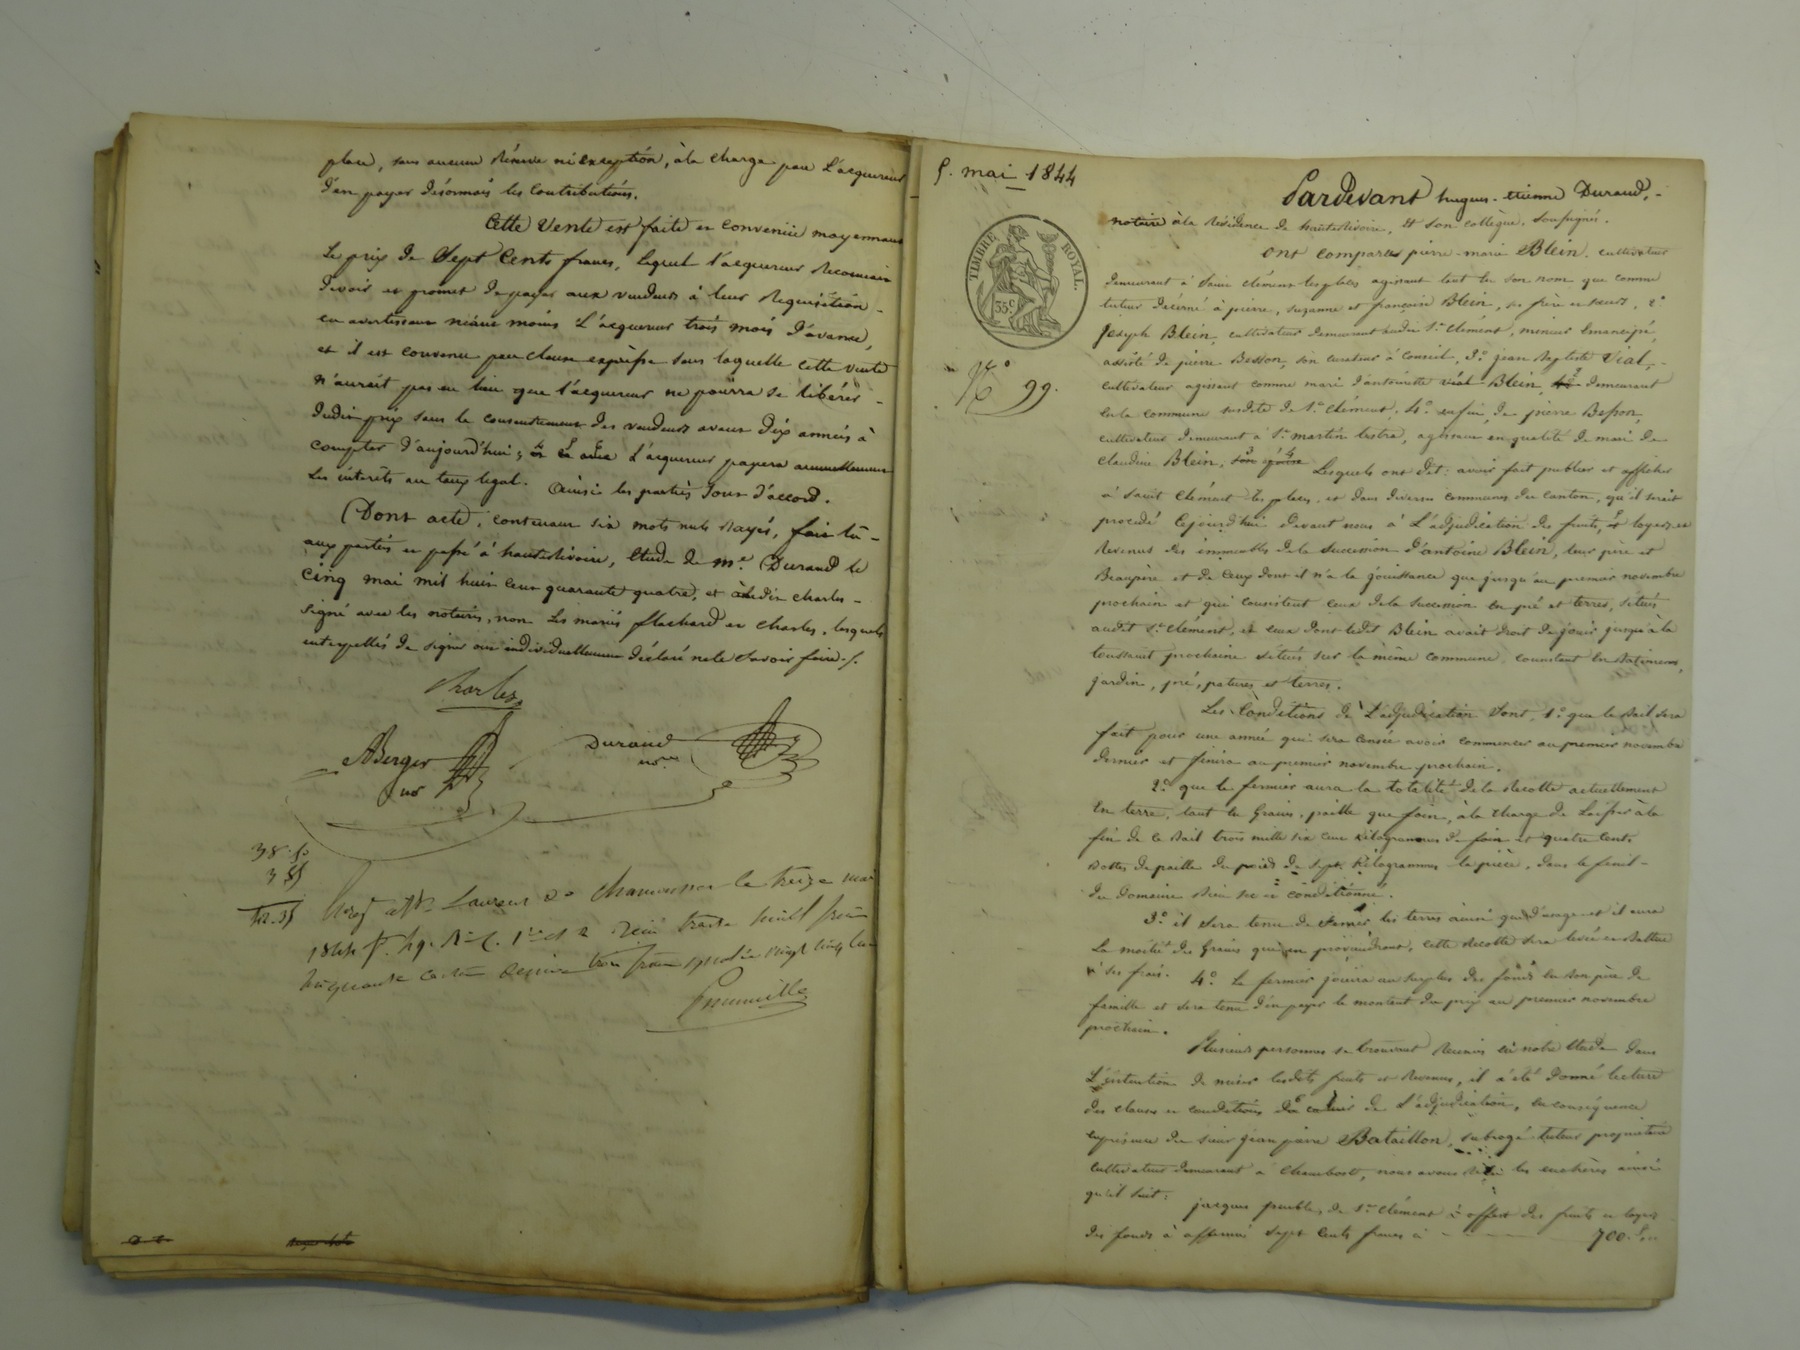 place, sans aucune Réserve ni exception, à la charge par l'acquereur
d'en payer désormais les Contributions.
Cette Vente est faite et convenue moyennant
Le prix de Sept Cents francs, lequel l'acquereur Reconnait
devoir et promet de payer aux vendeurs à leur Requisition
en avertissant l'acquereur trois mois d'avance,
et il est convenu par clause expresse sans laquelle cette vente
n'aurait pas eu lieu que l'acquereur ne pourra se libérer
dudit prix sans le consentement des vendeurs avant dix années à
compter d'aujourd'hui; l'acquereur payera annuellement
Les intérêts au taux légal. Ainsi les parties sont d'accord.
Dont acte, contenant six mots nuls Rayés, fait lu
aux parties et passé à hauterivoire, Etude de Me. Durand le
cinq mai mil huit cent quarante quatre, et ledit Charles
signé avec les notaires, non Les mariés flachard et Charles, lesquels
interpellés de signer ont individuellement déclaré ne le savoir faire./.
Charles
ABerger
nre
Durand
nore
38.50
3 85
42.35
St Laurent de Chamousset le treize mai
1844 f. 1re et 2 Reçu trente huit francs
cinquante centimes Decime trois francs quatre vingt cinq
5. mai 1844
TIMBRE ROYAL.
35c
No 99.
Pardevant hugues-etienne Durand,
notaire à la Résidence de hauterivoire, et son collègue, soussignés.
ont comparu pierre-marie Blein, cultivateur
demeurant à Saint clément-les places agissant tant en son nom que comme
tuteur décerné à pierre, suzanne et françoise Blein, ses frère et sœurs, 2.°
Joseph Blein, cultivateur demeurant audit St. clément, mineur émancipé,
assisté de pierre Besson, son curateur à conseil, 3.° jean Baptiste Vial,
cultivateur agissant comme mari d'antoinette Blein, demeurant
en la commune susdite de St. clément, 4.° enfin, de pierre Besson,
cultivateur demeurant à St. martin lestra, agissant en qualité de mari de
claudine Blein, son épouse Lesquels ont dit: avoir fait publier et afficher
à Saint Clément les places, et dans diverses communes du canton, qu'il serait
procédé cejourd'hui devant nous à L'adjudication des fruits, et
Revenus des immeubles de la Succession d'antoine Blein, leur père et
Beaupère et de ceux dont il n'a la jouissance que jusqu'au premier novembre
prochain et qui consistent ceux de la succession en pré et terres, situés
audit St. clément, et ceux dont ledit Blein avait droit de jouir jusqu'à la
toussaint prochaine situés sur la même commune, consistent en Batiments,
jardin, pré, patures et terres.
Les Conditions de L'adjudication Sont, 1.° que le Bail sera
fait pour une année qui sera censée avoir commencer au premier novembre
dernier et finira au premier novembre prochain.
2.° que le fermier aura la totalité de la Récolte actuellement
En terre, tant en Grains, paille que foin, à la charge de Laisser à la
fin de ce Bail trois mille six cent Kilogrammes de foin et quatre Cents
Bottes de paille du poids de sept Kilogrammes la pièce, dans le fenil
du Domaine Bien sec et conditionné.
3.° il sera tenu de semer les terres ainsi que d'usage et il aura
La moitié des Grains qui en proviendront, cette Récolte sera levée et Battue
à ses frais. 4.° Le fermier jouira au surplus des fonds en bon père de
famille et sera tenu d'en payer le montant du prix au premier novembre
prochain.
Plusieurs personnes se trouvant Réunies en notre Etude dans
L'intention de miser lesdits fruits et Revenus, il a été Donné lecture
des clauses et conditions de l'adjudication, en conséquence
en présence du sieur jean pierre Bataillon, subrogé-tuteur propriétaire
cultivateur demeurant à Chambost, nous avons les enchères ainsi
qu'il suit:
jacques de St. Clément à offert des fruits et
des fonds à affermer sept cents francs ci 700.